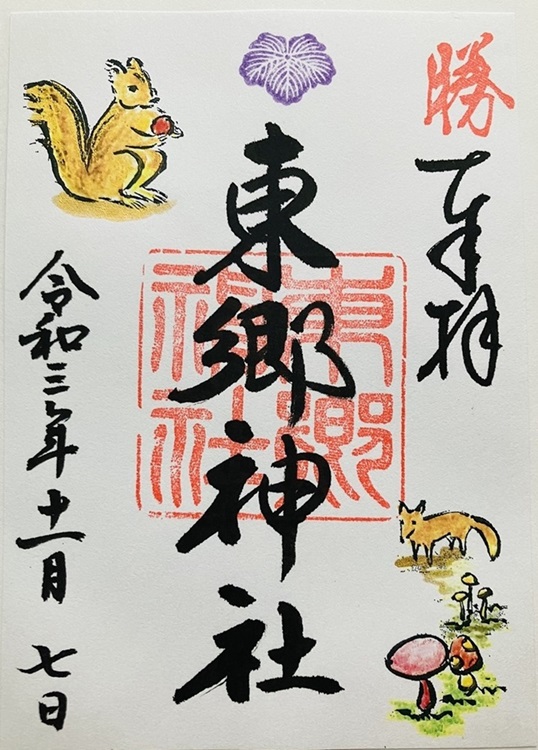 勝
奉拝
東郷神社
東郷神社
令和三年十一月七日